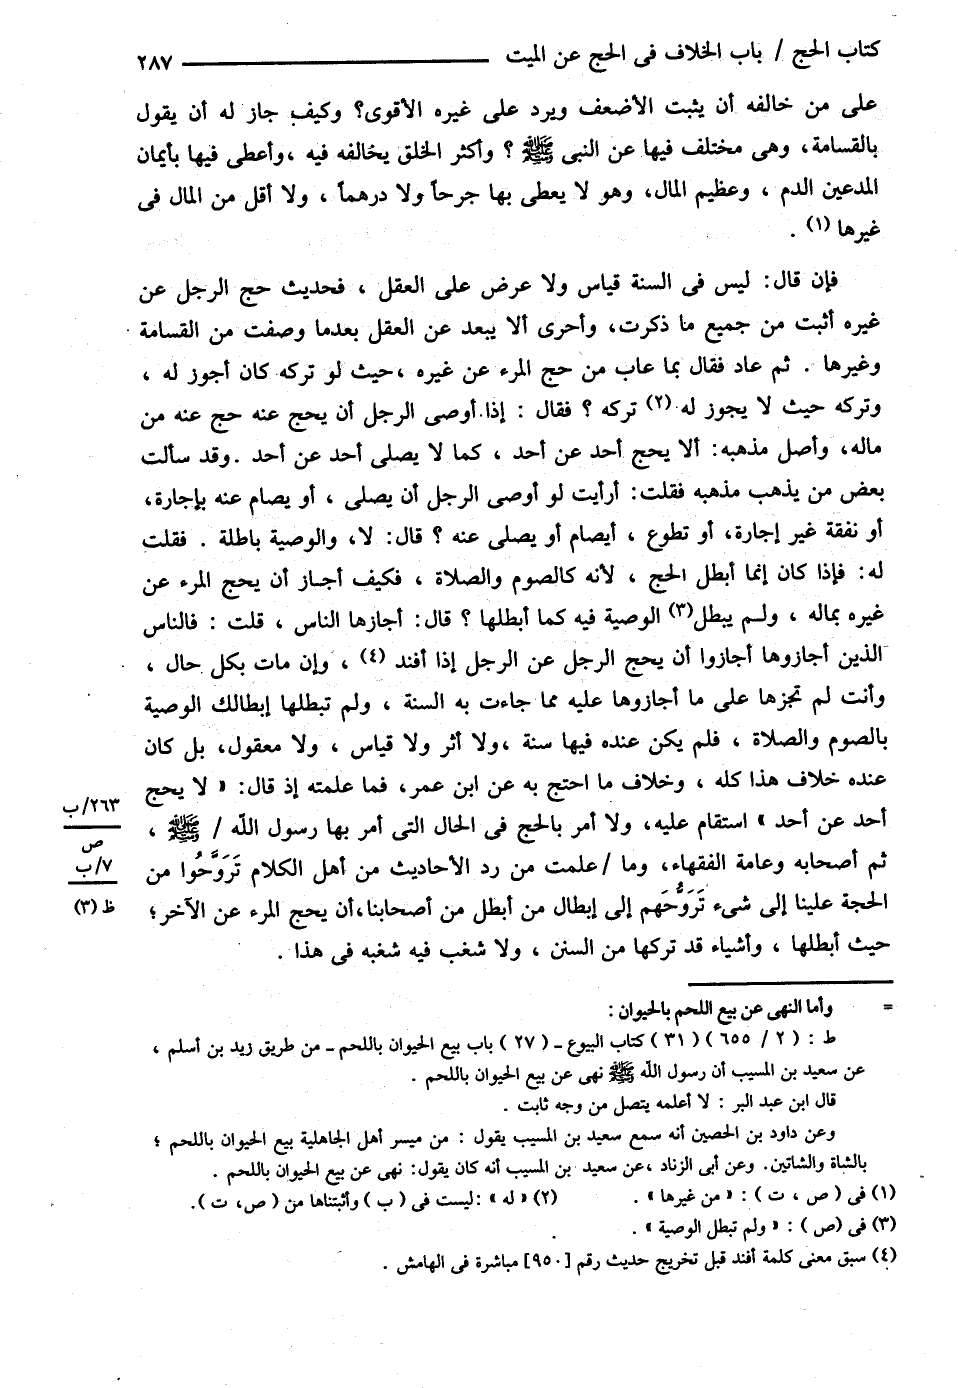 كتاب الحج / باب الخلاف فى الحج عن الميت ــــــــــــ ٢٨٧
على من خالفه أن يثبت الأضعف ويرد على غيره الأقوى؟ وكيف جاز له أن يقول
بالقسامة، وهى مختلف فيها عن النبى ﷺ ؟ وأكثر الخلق يخالفه فيه ،وأعطى فيها بأيمان
المدعين الدم ، وعظيم المال، وهو لا يعطى بها جرحاً ولا درهماً ، ولا أقل من المال فى
غيرها (١) .
فإن قال: ليس فى السنة قياس ولا عرض على العقل ، فحديث حج الرجل عن
غيره أثبت من جميع ما ذكرت، وأحرى ألا يبعد عن العقل بعدما وصفت من القسامة
وغيرها . ثم عاد فقال بما عاب من حج المرء عن غيره ،حيث لو تركه كان أجوز له ،
وتركه حيث لا يجوز له (٢) تركه ؟ فقال : إذا أوصى الرجل أن يحج عنه حج عنه من
ماله، وأصل مذهبه: ألا يحج أحد عن أحد ، كما لا يصلى أحد عن أحد .وقد سألت
بعض من يذهب مذهبه فقلت: أرأيت لو أوصى الرجل أن يصلى ، أو يصام عنه بإجارة،
أو نفقة غير إجارة، أو تطوع ، أيصام أو يصلى عنه ؟ قال: لا، والوصية باطلة . فقلت
له: فإذا كان إنما أبطل الحج ، لأنه كالصوم والصلاة ، فكيف أجاز أن يحج المرء عن
غيره بماله ، ولـم يبطل(٣) الوصية فيه كما أبطلها ؟ قال: أجازها الناس ، قلت : فالناس
الذين أجازوها أجازوا أن يحج الرجل عن الرجل إذا أفند (٤) ، وإن مات بكل حال ،
وأنت لم تجزها على ما أجازوها عليه مما جاءت به السنة ، ولم تبطلها إبطالك الوصية
بالصوم والصلاة ، فلم يكن عنده فيها سنة ،ولا أثر ولا قياس ، ولا معقول، بل كان
عنده خلاف هذا كله ، وخلاف ما احتج به عن ابن عمر، فما علمته إذ قال: « لا يحج
أحد عن أحد » استقام عليه، ولا أمر بالحج فى الحال التى أمر بها رسول الله / ﷺ ،
ثم أصحابه وعامة الفقهاء، وما / علمت من رد الأحاديث من أهل الكلام تَرَوَّحُوا من
الحجة علينا إلى شىء تَرَوُّحَهم إلى إبطال من أبطل من أصحابنا،أن يحج المرء عن الآخر؛
حيث أبطلها ، وأشياء قد تركها من السنن ، ولا شغب فيه شغبه فى هذا .
٢٦٣/ب
ص
٧/ب
ظ (٣)
= وأما النهى عن بيع اللحم بالحيوان :
ط : ( ٢ / ٦٥٥ ) ( ٣١ ) كتاب البيوع ـ ( ٢٧ ) باب بيع الحيوان باللحم ـ من طريق زيد بن أسلم ،
عن سعيد بن المسيب أن رسول الله ﷺ نهى عن بيع الحيوان باللحم .
قال ابن عبد البر : لا أعلمه يتصل من وجه ثابت .
وعن داود بن الحصين أنه سمع سعيد بن المسيب يقول : من ميسر أهل الجاهلية بيع الحيوان باللحم ؛
بالشاة والشاتين. وعن أبى الزناد ،عن سعيد بن المسيب أنه كان يقول: نهى عن بيع الحيوان باللحم .
(١) فى ( ص ، ت ) : « من غيرها » . (٢) « له » :ليست فى ( ب ) وأثبتناها من ( ص، ت ).
(٣) فى (ص ) : « ولم تبطل الوصية » .
(٤) سبق معنى كلمة أفند قبل تخريج حديث رقم [٩٥٠] مباشرة فى الهامش .